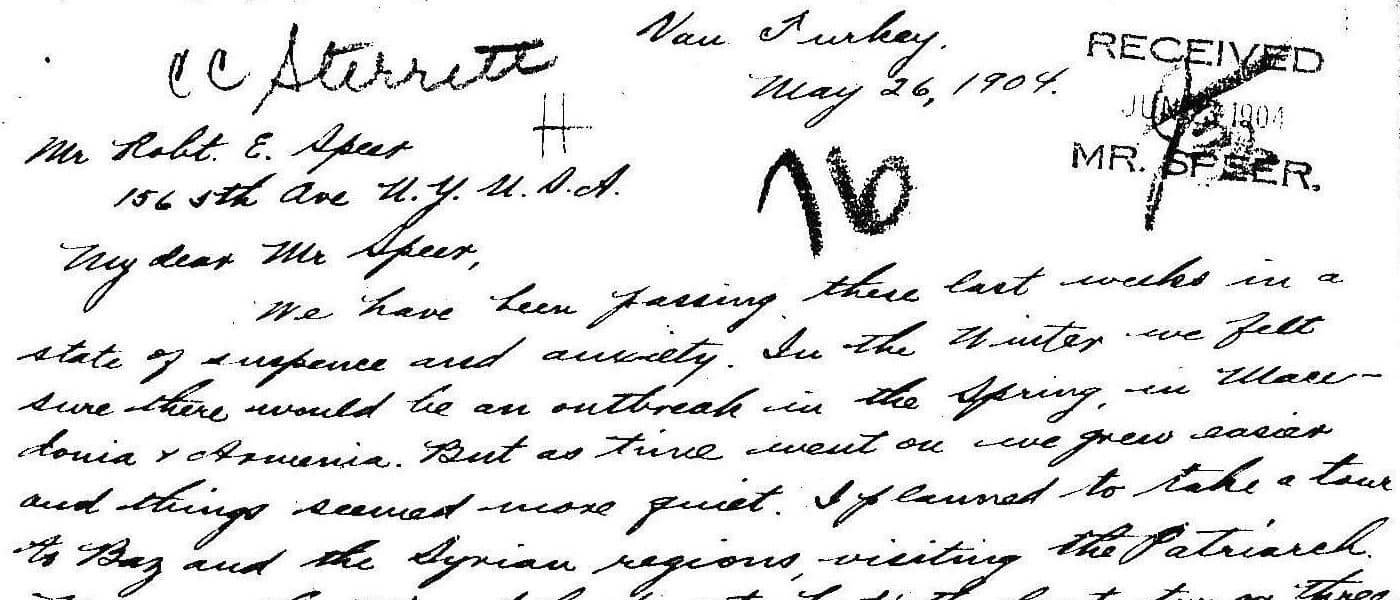 CC Sterrett
Van Turkey.
May 26, 1904.
RECEIVED
JUN 1904
MR. SPEER.
H
76
Mr Robt. E. Speer
156 5th Ave N.Y. U.S.A.
My dear Mr Speer,
We have been passing these last weeks in a
state of suspence and anxiety. In the Winter we felt
sure there would be an outbreak in the Spring, in Mace-
donia & Armenia. But as time went on we grew easier
and things seemed more quiet. I planned to take a tour
to Baz and the Syrian regions, visiting the Patriarch.
three